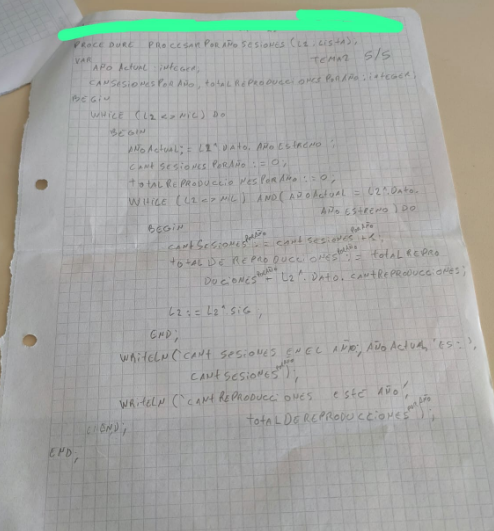 PROCEDURE PROCESARPORAÑO SESIONES (L2: LISTA);
TEMA2 5/5
VAR
AÑO ACTUAL: integer;
CANSESIONESPORAÑO, totalREPRODUCCIONESPORAÑO: integer;
BEGIN
WHILE (L2 <> NIL) DO
BEGIN
AÑOACTUAL:= L2^.DATO.AÑOESTRENO;
CANTSESIONESPORAÑO := 0;
TOTALREPRODUCCIONESPORAÑO := 0;
WHILE (L2 <> NIL) AND (AÑOACTUAL = L2^.DATO.
AÑOESTRENO) DO
BEGIN
CANTSESIONESPORAÑO := CANTSESIONESPORAÑO + 1;
TOTALDEREPRODUCCIONESPORAÑO := TOTALREPRO
DUCIONESPORAÑO + L2^.DATO.CANTREPRODUCCIONES;
L2 := L2^.SIG;
END;
WRITELN('CANT SESIONES EN EL AÑO', AÑO ACTUAL, 'ES:',
CANTSESIONES
WRITELN('CANTREPRODUCCIONES ESTE AÑO',
TOTALDEREPRODUCCIONESPORAÑO);
END;
END;